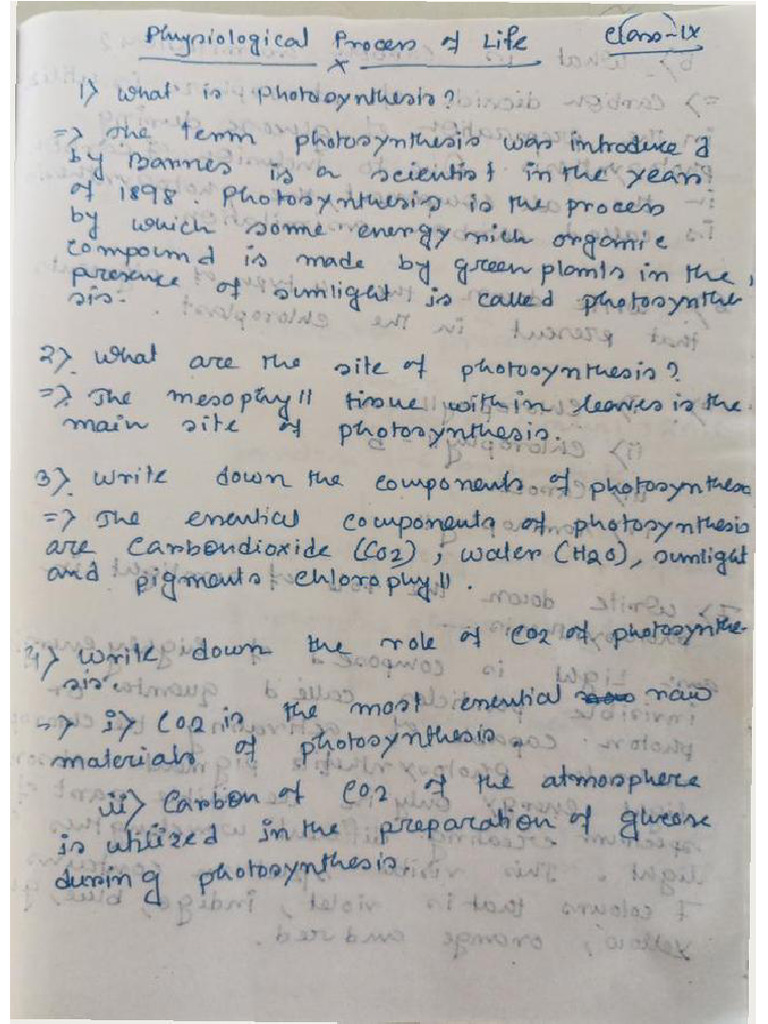 Physiological Process of Life Class-IX
x
1) What is photosynthesis?
=> The term photosynthesis was introduced
by Barnes is a scientist in the years
of 1898. Photosynthesis is the process
by which some energy rich organic
compound is made by green plants in the
presence of sunlight is called photosynthe-
sis.
2) What are the site of photosynthesis?
=> The mesophyll tissue within leaves is the
main site of photosynthesis.
3) Write down the components of photosynthesis
=> The essential components of photosynthesis
are Carbondioxide (CO2), water (H2O), sunlight
and pigments chlorophyll.
4) Write down the role of CO2 of photosynthe-
sis.
=> i) CO2 is the most essential raw
materials of photosynthesis.
ii) Carbon of CO2 of the atmosphere
is utilized in the preparation of glucose
during photosynthesis.